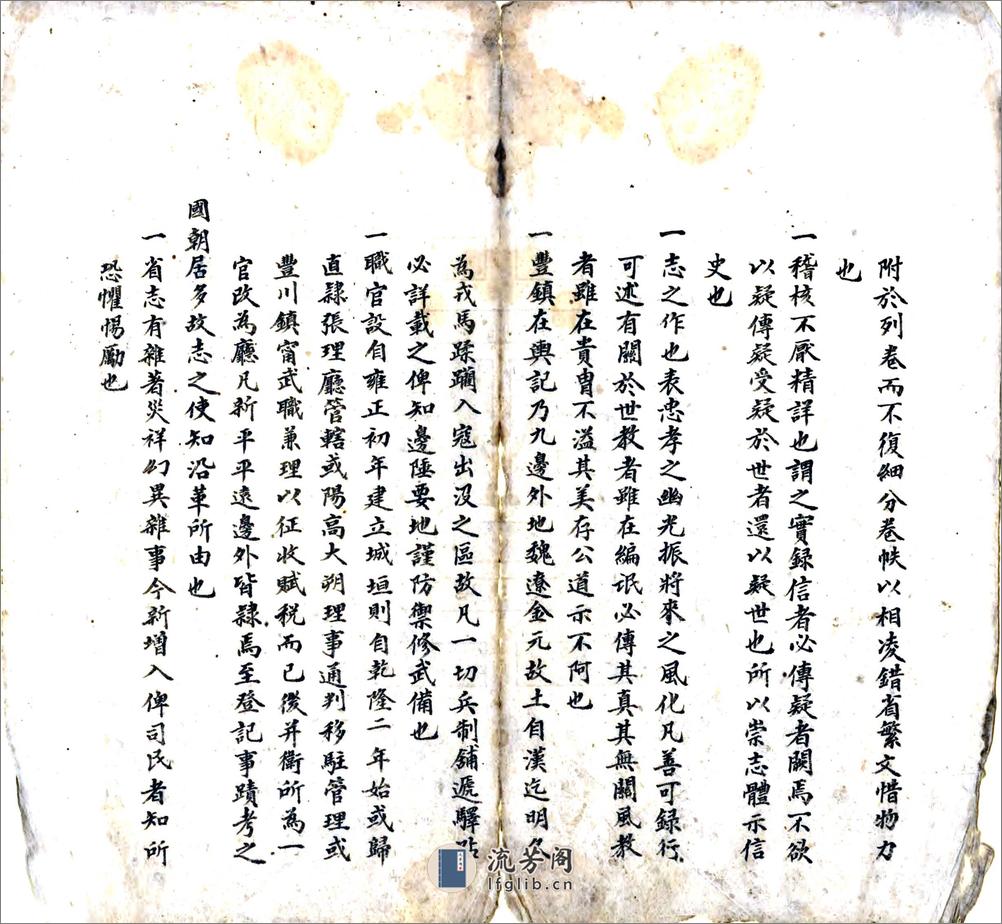 附於列卷而不復細分卷帙以相凌錯省繁文惜物力
也
一稽核不厭精詳也謂之實錄信者必傳疑者闕焉不欲
以疑傳疑受疑於世者還以疑世也所以崇志體示信
史也
一志之作也表忠孝之幽光振將來之風化凡善可錄行
可述有關於世教者雖在編氓必傳其真其無關風教
者雖在貴胄不溢其美存公道示不阿也
一豐鎮在輿記乃九邊外地魏遼金元故土自漢迄明
為戎馬蹂躪入寇出沒之區故凡一切兵制舖遞驛站
必詳載之俾知邊陲要地謹防禦修武備也
一職官設自雍正初年建立城垣則自乾隆二年始或歸
直隸張理廳管轄或陽高大朔理事通判移駐管理或
豐川鎮甯武職兼理以征收賦稅而已後并衛所為一
官改為廳凡新平平遠邊外皆隸焉至登記事蹟考之
國朝居多故志之使知沿革所由也
一省志有雜著災祥幻異雜事今新增入俾司民者知所
恐懼惕勵也
流芳阁
lfglib.cn